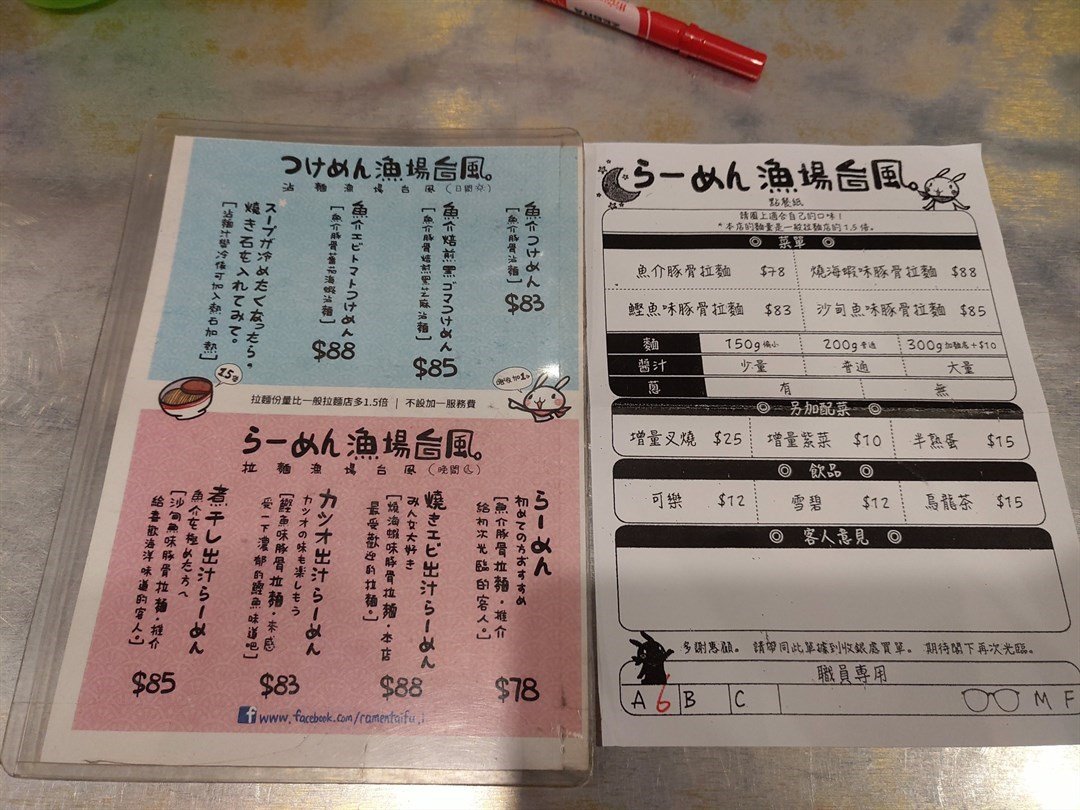 ZEBRA
つけめん漁場台風。
沾麵漁場台風(日間)
魚介つけめん
[魚介豚骨沾麵]
$83
魚介焙煎黒ゴマつけめん
[魚介豚骨焙煎黑芝麻沾麵]
$85
魚介エビトマトつけめん
[魚介豚骨蕃茄海蝦沾麵]
$88
スープが冷めたくなったら。
焼き石を入れてみて。
[沾麵汁變冷後可加入熱石加熱]
1.5倍
拉麵份量比一般拉麵店多1.5倍 | 不設加一服務費
不收加一。
らーめん漁場台風。
拉麵漁場台風(晚間)
らーめん
初めての方おすすめ
[魚介豚骨拉麵。推介
給初次光臨的客人。]
$78
焼きエビ出汁らーめん
みんな大好き
[燒海蝦味豚骨拉麵。本店
最受歡迎的拉麵。]
$88
カツオ出汁らーめん
カツオの味も楽しもう
[鰹魚味豚骨拉麵。來感
受一下濃郁的鰹魚味道吧]
$83
煮干し出汁らーめん
魚介を極めた方へ
[沙甸魚味豚骨拉麵。推介
給喜歡海洋味道的客人。]
$85
www.facebook.com/ramentaifu.i
らーめん漁場台風。
點餐紙
請圈上適合自己的口味!
*本店的麵量是一般拉麵店的1.5倍。
◎ 菜單 ◎
魚介豚骨拉麵 $78 燒海蝦味豚骨拉麵 $88
鰹魚味豚骨拉麵 $83 沙甸魚味豚骨拉麵 $85
麵 150g偏小 200g普通 300g加麵底+$10
醬汁 少量 普通 大量
蔥 有 無
◎ 另加配菜 ◎
增量叉燒 $25 增量紫菜 $10 半熟蛋 $15
◎ 飲品 ◎
可樂 $12 雪碧 $12 烏龍茶 $15
◎ 客人意見 ◎
多謝惠顧。 請帶同此單據到收銀處買單。 期待閣下再次光臨。
職員専用
A 6 B C M F